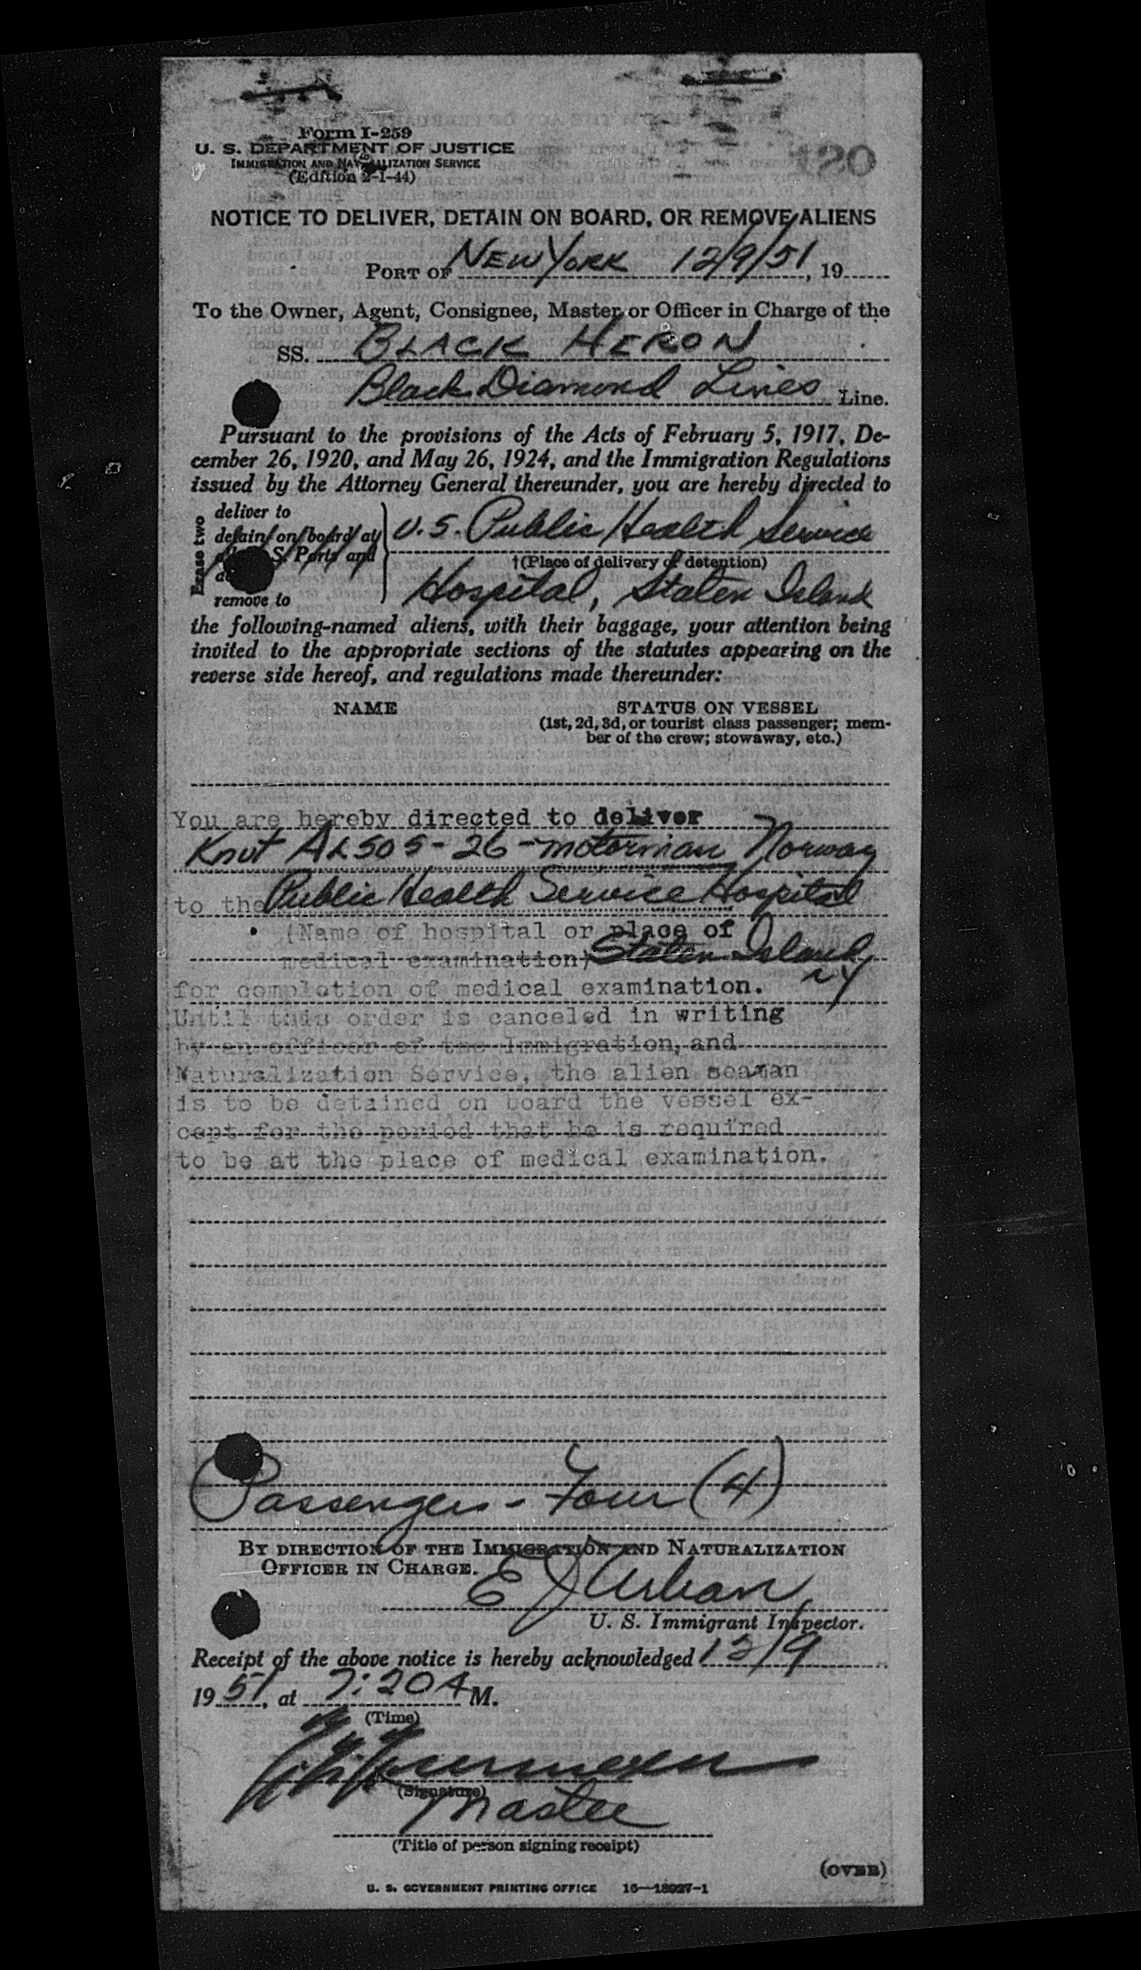 Form I-259
U. S. DEPARTMENT OF JUSTICE
IMMIGRATION AND NATURALIZATION SERVICE
(Edition 2-1-44)
NOTICE TO DELIVER, DETAIN ON BOARD, OR REMOVE ALIENS
PORT OF NEW YORK 12/9/51, 19
To the Owner, Agent, Consignee, Master or Officer in Charge of the
SS. BLACK HERON
Black Diamond Lines Line.
Pursuant to the provisions of the Acts of February 5, 1917, De-
cember 26, 1920, and May 26, 1924, and the Immigration Regulations
issued by the Attorney General thereunder, you are hereby directed to
Erase two
deliver to
detain on board at
S. Ports and
remove to
U.S. Public Health Service
†(Place of delivery of detention)
Hospital, Staten Island
the following-named aliens, with their baggage, your attention being
invited to the appropriate sections of the statutes appearing on the
reverse side hereof, and regulations made thereunder:
NAME STATUS ON VESSEL
(1st, 2d, 3d, or tourist class passenger; mem-
ber of the crew; stowaway, etc.)
You are hereby directed to deliver
Knut ALSOS - 26 - motorman Norway
to the Public Health Service Hospital
(Name of hospital or place of
medical examination) Staten Island
NY
for completion of medical examination.
Until this order is canceled in writing
by an officer of the Immigration, and
Naturalization Service, the alien seaman
is to be detained on board the vessel ex-
cept for the period that he is required
to be at the place of medical examination.
Passengers - Four (4)
BY DIRECTION OF THE IMMIGRATION AND NATURALIZATION
OFFICER IN CHARGE.
E J Urban
U. S. Immigrant Inspector.
Receipt of the above notice is hereby acknowledged 12/9
1951, at 7:20 A M.
(Time)
(Signature)
Master
(Title of person signing receipt)
(OVER)
U. S. GOVERNMENT PRINTING OFFICE 16—18927-1